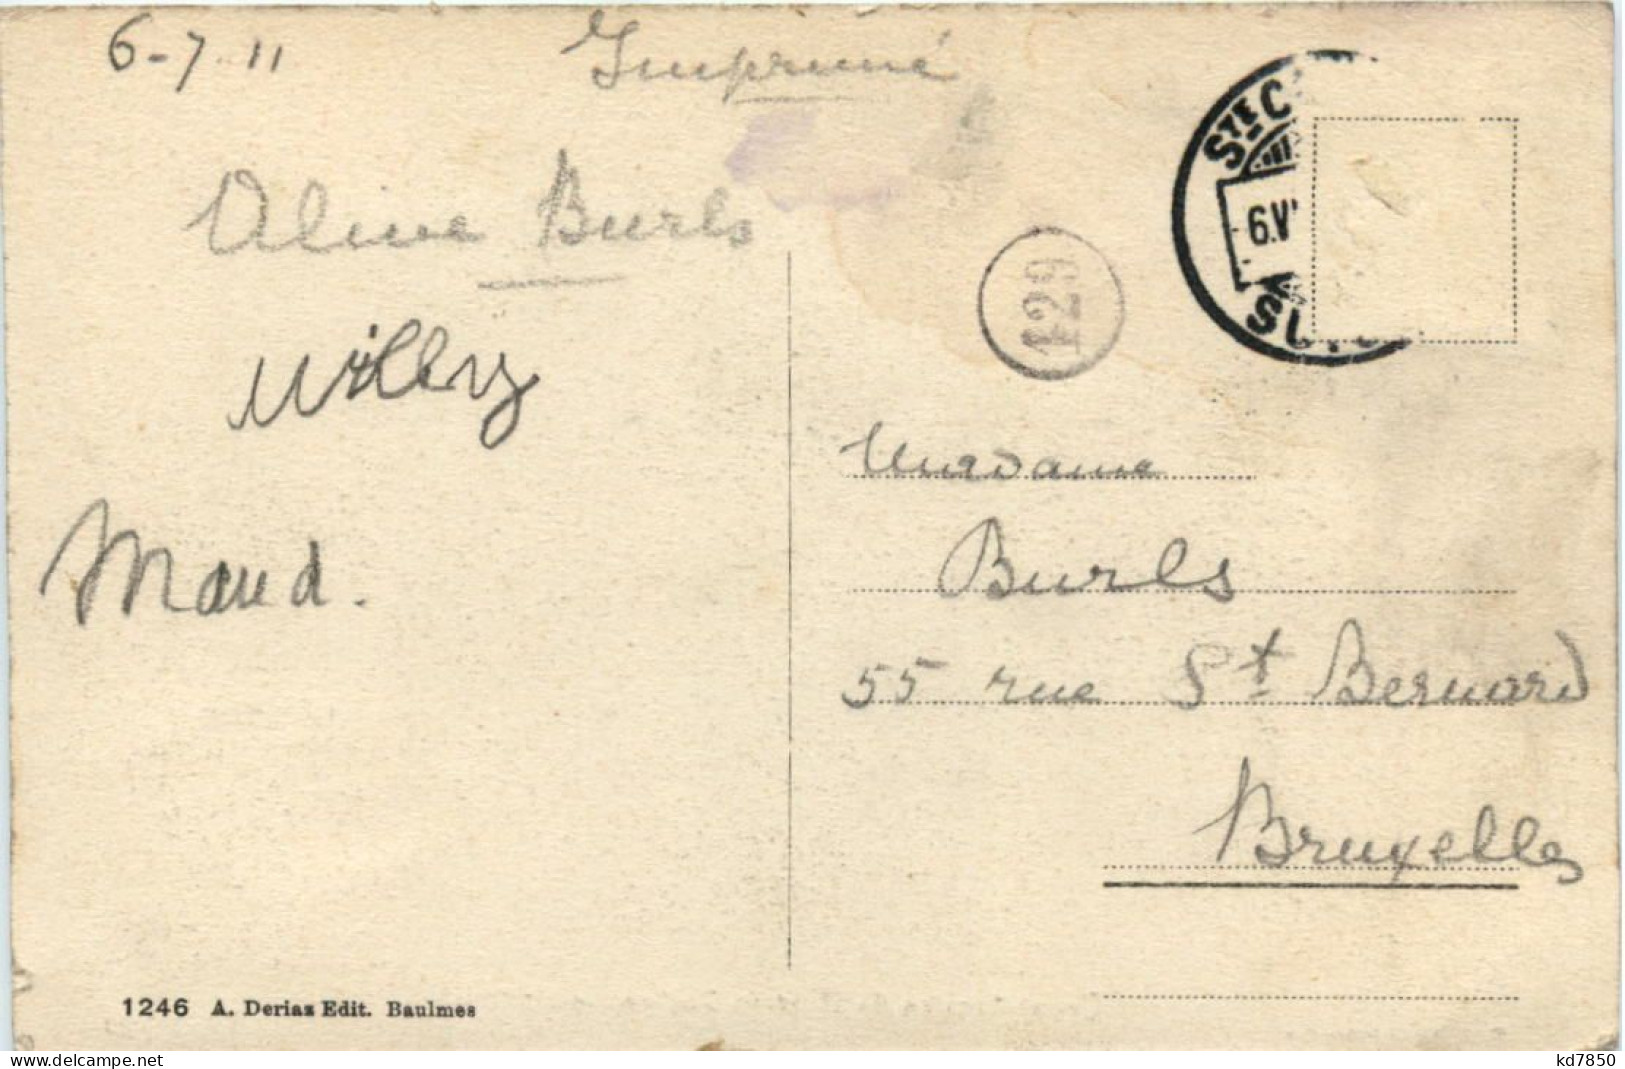 6-7.11
Imprimé
Olive Burls
Willy
Maud.
STE C
6.VI
SU
129
Madame
Burls
55 rue St Bernard
Bruxelles
1246 A. Deriaz Edit. Baulmes
www.delcampe.net
kd7850